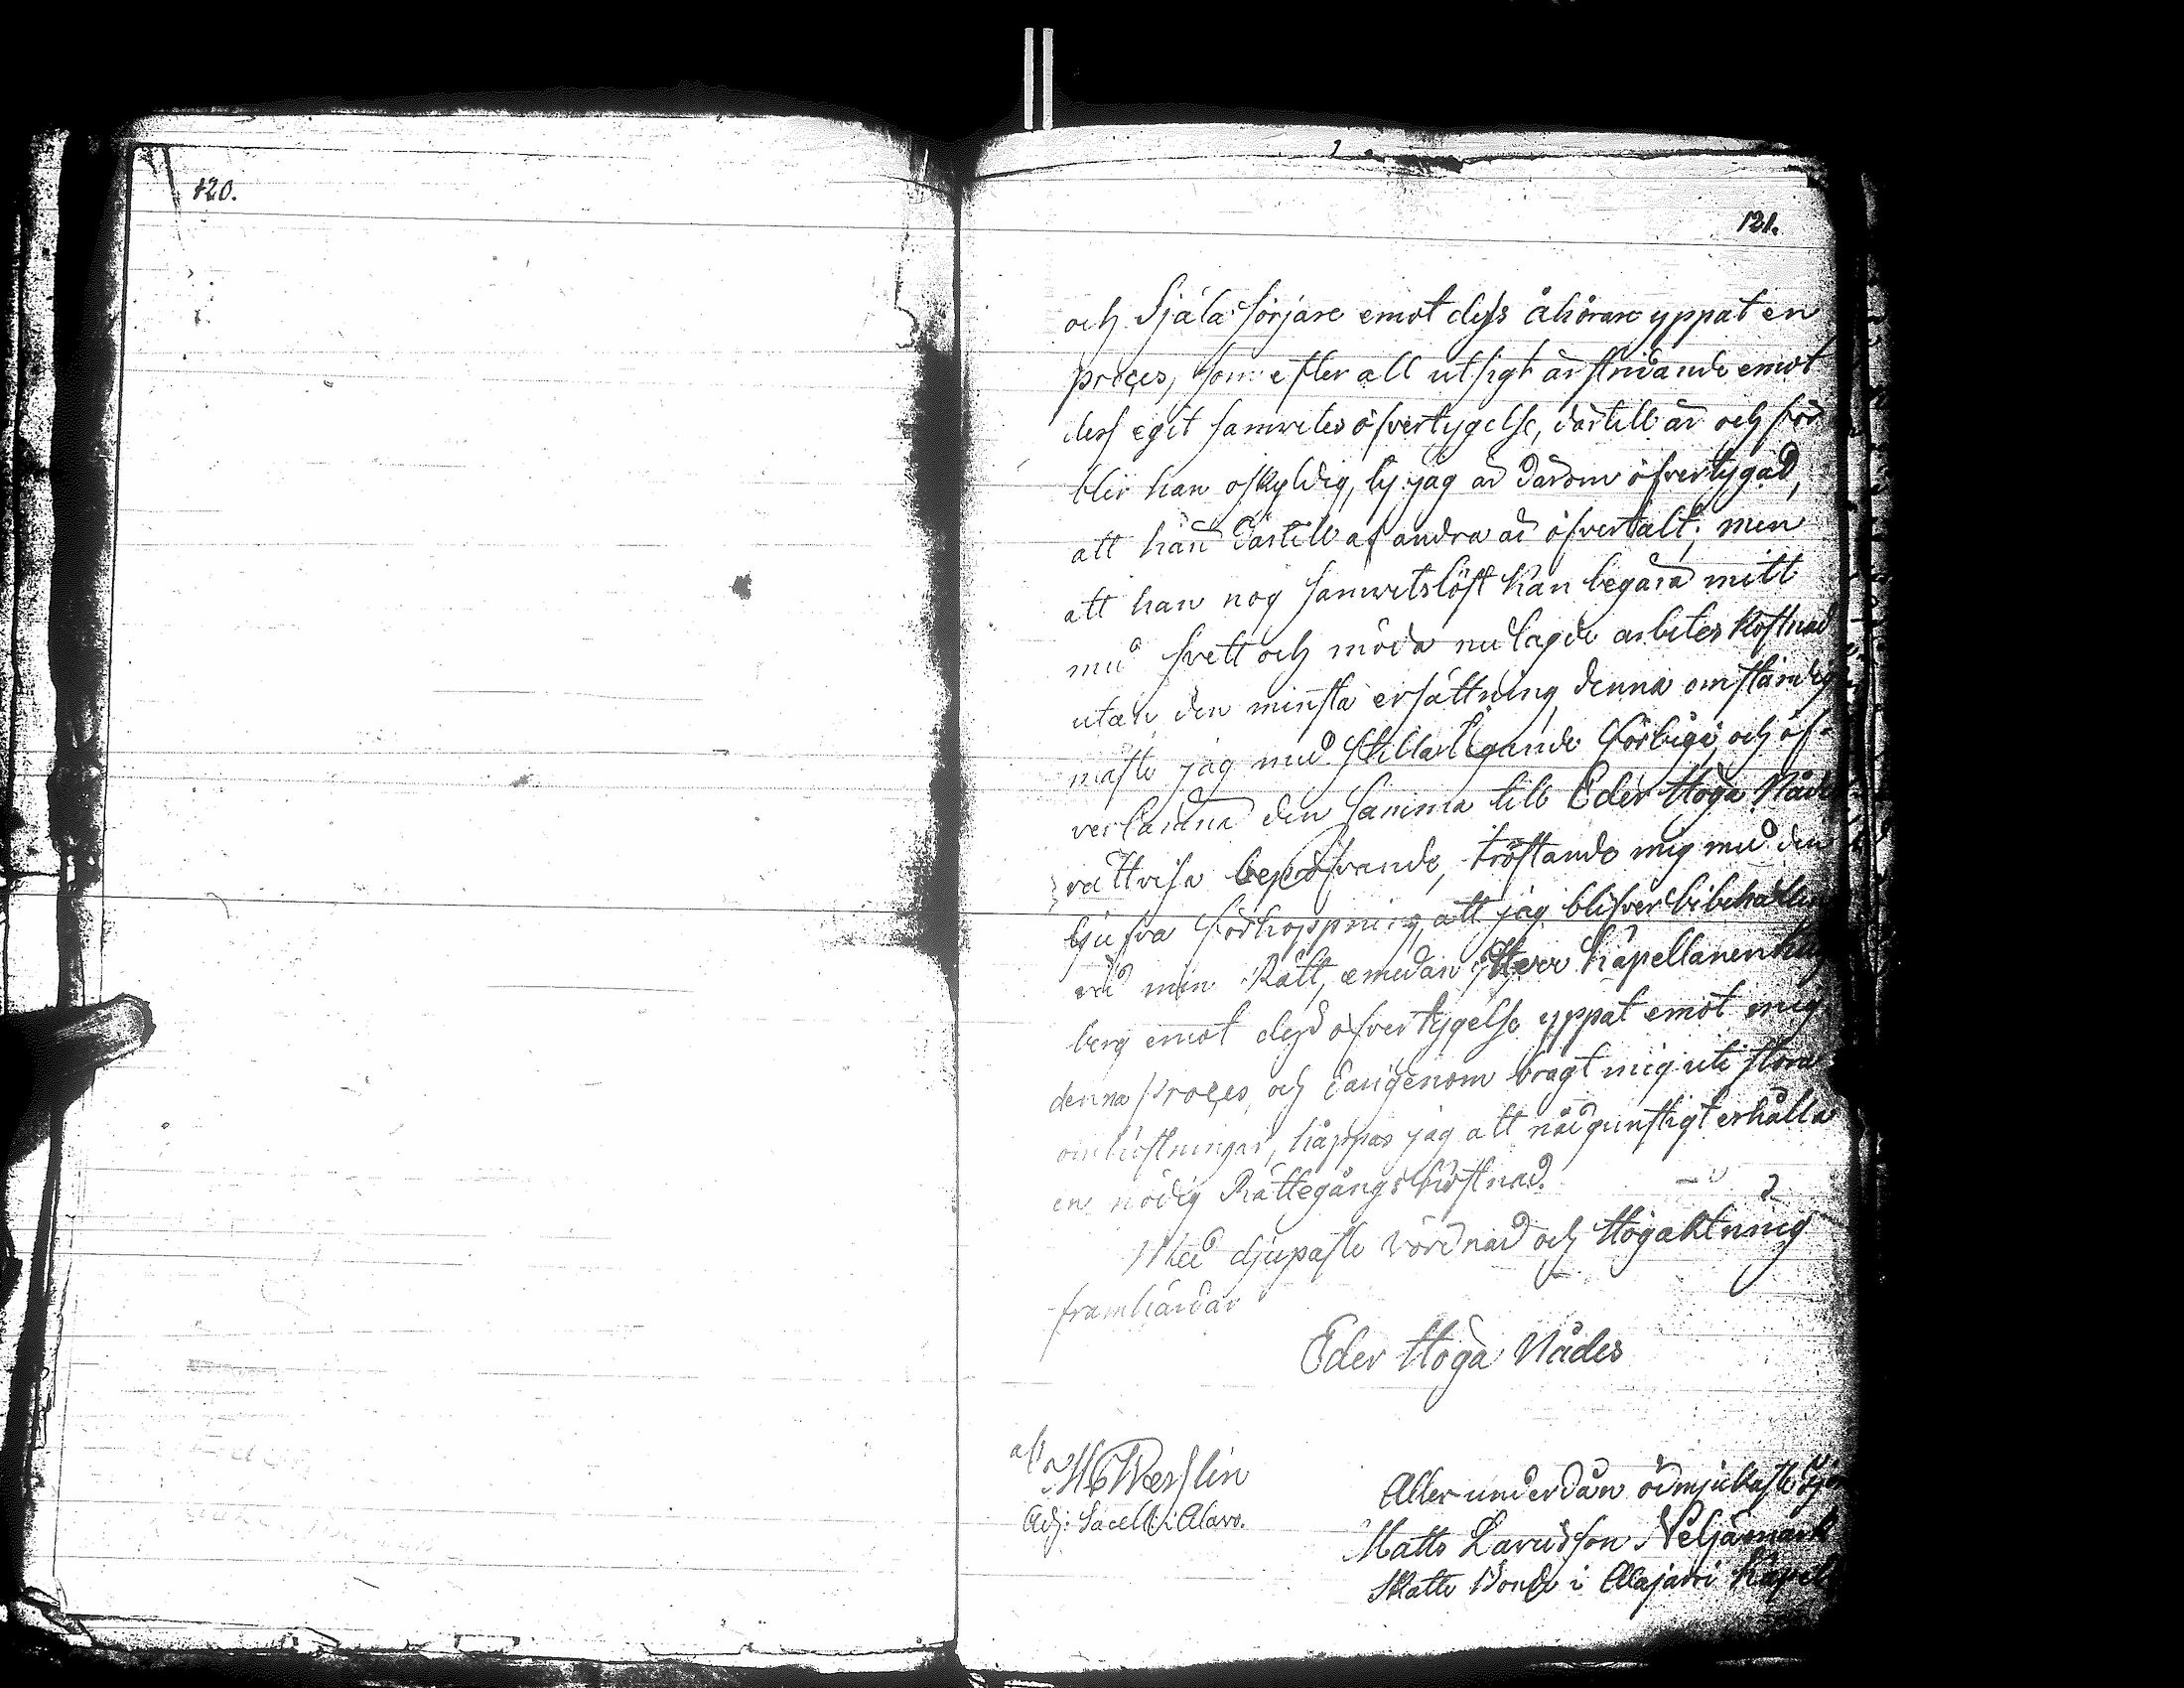 120.
121.
och Själa Sörjare emot dess åhörare yppat en
proçes, som efter all utsigt är stridande emot
dess egit samvetes öfvertygelse, därtill är och för
blir han oskyldig, ty jag är därom öfvertygad,
att han därtill af andra är öfvertalt; men
att han nog samvetslöst kan begära mitt
med svett och möda nedlagde arbetes kostnad
utan den minsta ersättning, denna omständig
måste jag med stillatigande förbigå, och öf-
verlämna den samma till Eder Höga Nåds
rättvisa bepröfvande, tröstande mig med den
ljufva förhoppning, att jag blifver bibehållen
vid min Rätt, emedan Herr Kapellanen
berg emot dess öfvertygelse yppat emot mig
denna Proçes, och därigenom bragt mig uti stora
omkostningar, håppas jag att nådgunstigt erhålla
en nödig Rättegångs kostnad.
Med djupaste vördnad och Högaktning
framhärdar
Eder Höga Nådes
Aller underdån ödmjukaste
Matts Davidsson
Skatte Bonde i Alajärvi Kapell
Adj: Sacell: i Alavo.